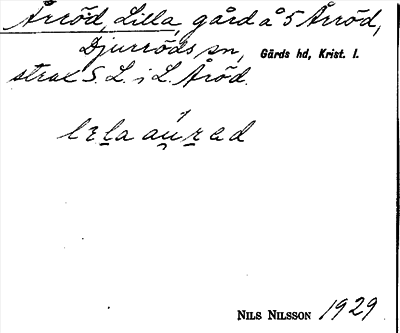 Årröd, Lilla, gård å 5 Årröd,
Djurröds sn, Gärds hd, Krist. l.
strax S. L. i L. Åröd.
lɛla aúʀad
NILS NILSSON 1929